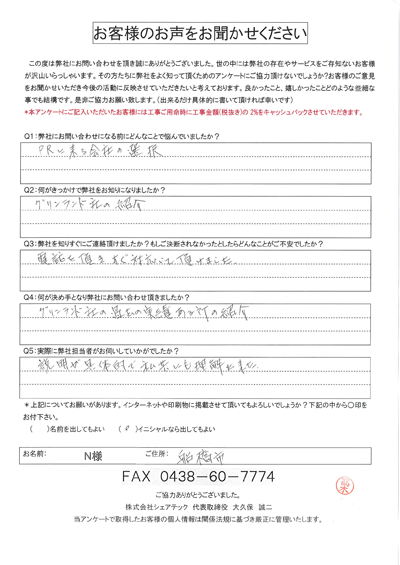 お客様のお声をお聞かせください
この度は弊社にお問い合わせを頂き誠にありがとうございました。世の中には弊社の存在やサービスをご存知ないお客様
が沢山いらっしゃいます。その方たちに弊社をよく知って頂くためのアンケートにご協力頂けないでしょうか?お客様のご意見
をお聞かせいただき今後の活動に反映させていただきたいと考えております。良かったこと、嬉しかったことどのような些細な
事でも結構です。是非ご協力お願い致します。(出来るだけ具体的に書いて頂ければ幸いです)
*本アンケートにご記入いただいたお客様には工事ご用命時に工事金額(税抜き)の 2%をキャッシュバックさせていただきます。
Q1:弊社にお問い合わせになる前にどんなことで悩んでいましたか?
PRに来る会社の選択
Q2:何がきっかけで弊社をお知りになりましたか?
グリンランド社の紹介
Q3:弊社を知りすぐにご連絡頂けましたか?もしご決断されなかったとしたらどんなことがご不安でしたか?
電話を頂きすぐ対応して頂けました。
Q4:何が決め手となり弊社にお問い合わせ頂きましたか?
グリンランド社の過去の実績あるTの紹介
Q5:実際に弊社担当者がお伺いしていかがでしたか?
説明が具体的で私共にも理解出来た
*上記についてお願いがあります。インターネットや印刷物に掲載させて頂いてもよろしいでしょうか?下記の中から〇印を
お付け下さい。
( )名前を出してもよい ( )イニシャルなら出してもよい
お名前: N様 ご住所: 船橋市
FAX 0438-60-7774
ご協力ありがとうございました。
株式会社シェアテック 代表取締役 大久保 誠二
当アンケートで取得したお客様の個人情報は関係法規に基づき厳正に管理いたします。